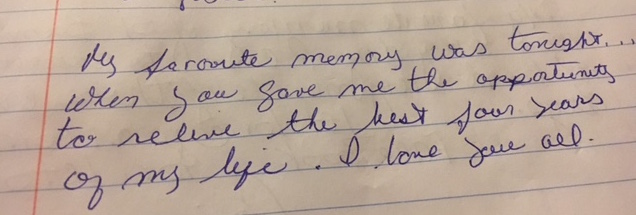 My favourite memory was tonight...
when you gave me the opportunity
to relive the best four years
of my life. I love you all.